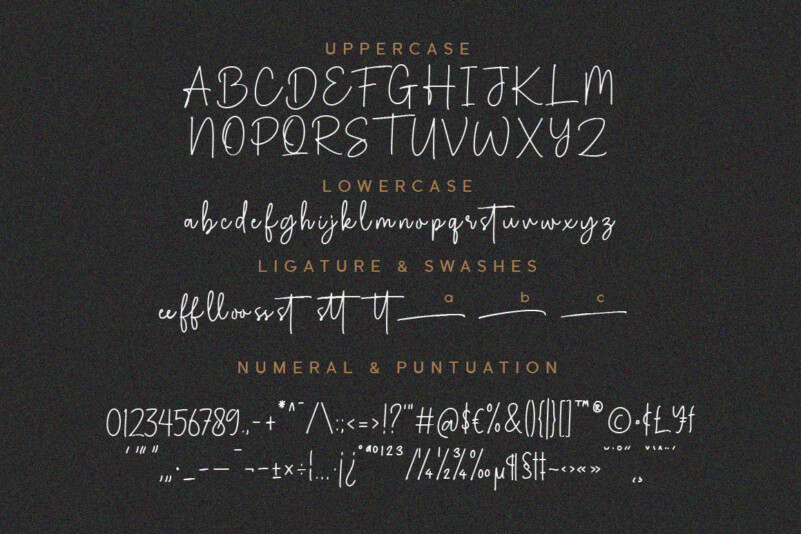 UPPERCASE
ABCDEFGHIJKLM
NOPQRSTUVWXYZ
LOWERCASE
abcdefghijklmnopqrstuvwxyz
LIGATURE & SWASHES
eefflloossst stt tt a b c
NUMERAL & PUNTUATION
0123456789.,-+*^~/\:;<=>!?'"#@$€%&(){|}[]™®©•¢£¥ƒ
‚„…·_–—¬-±×÷¦…·¡¿°ªº123/¼½¾‰µ¶§†‡~‹›«»